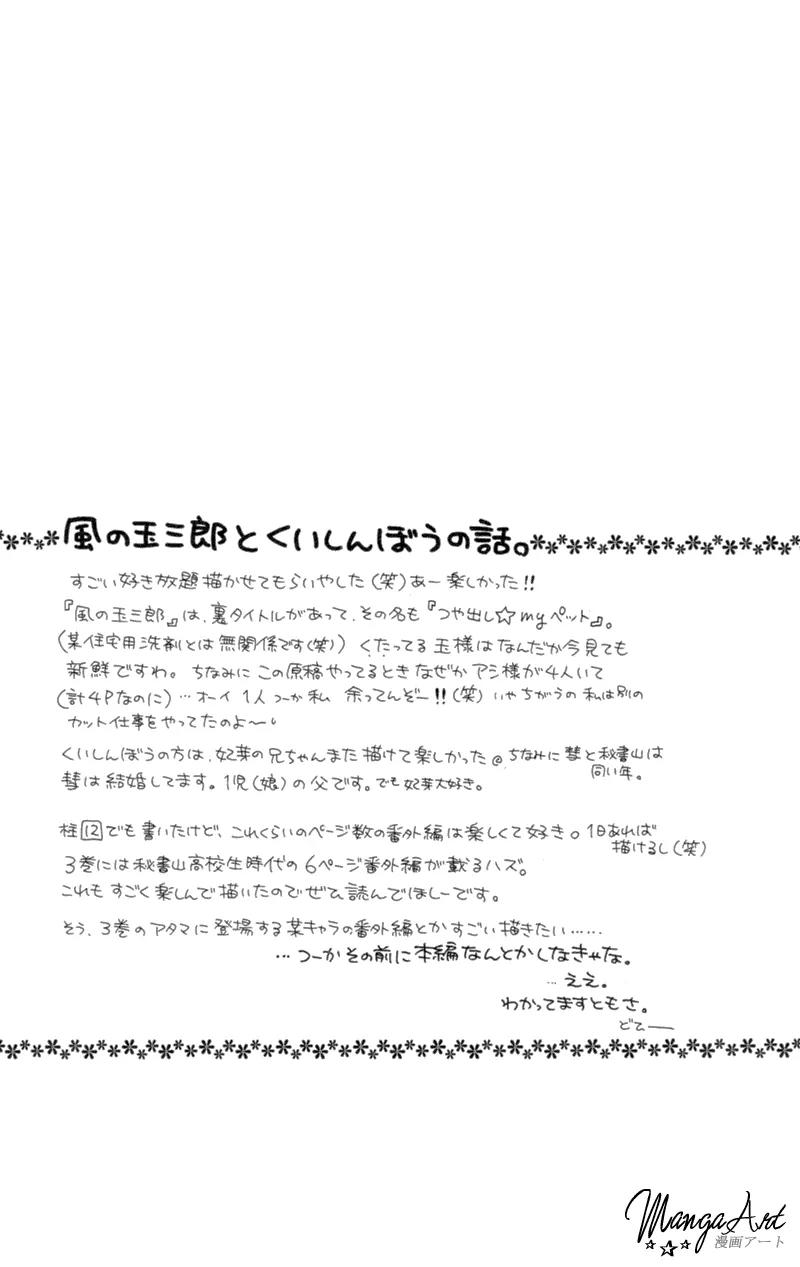 風の玉三郎とくいしんぼうの話。
すごい好き放題描かせてもらいやした(笑)あー楽しかった!!
『風の玉三郎』は、裏タイトルがあって、その名も『つや出し☆myペット』。
(某住宅用洗剤とは無関係です(笑))くたってる玉様はなんだか今見ても
新鮮ですわ。ちなみにこの原稿やってるときなぜかアシ様が4人いて
(計4Pなのに)…オーイ1人つーか私 余ってんぞー!!(笑)いやちがうの私は別の
カット仕事をやってたのよ〜。
くいしんぼうの方は、妃芽の兄ちゃんまた描けて楽しかった@ちなみに彗と秘書山は
同い年。
彗は結婚してます。1児(娘)の父です。でも妃芽大好き。
柱12でも書いたけど、これくらいのページ数の番外編は楽しくて好き。1日あれば
描けるし(笑)
3巻には秘書山高校生時代の6ページ番外編が載るハズ。
これもすごく楽しんで描いたのでぜひ読んでほしーです。
そう、3巻のアタマに登場する某キャラの番外編とかすごい描きたい……
…つーかその前に本編なんとかしなきゃな。
…ええ。
わかってますともさ。
どてー
MangaArt
漫画アート